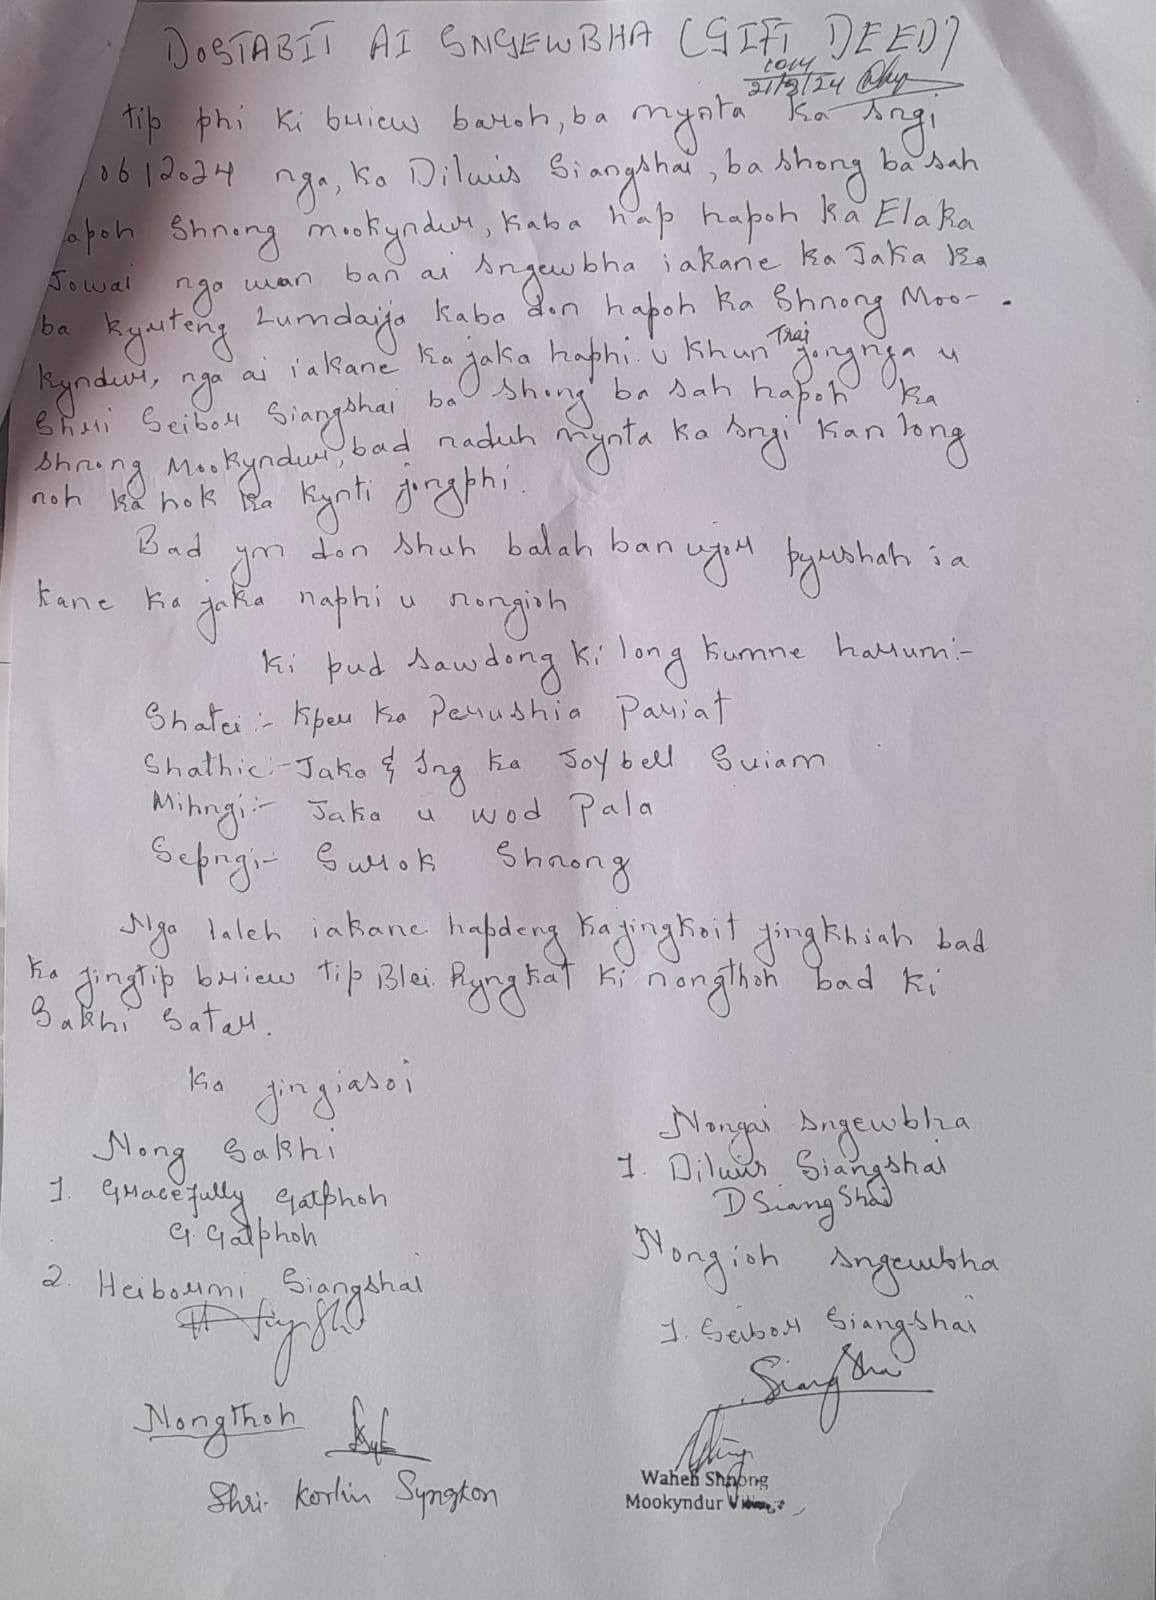 DOSTABIT AI SNGEWBHA (GIFT DEED)
21/8/24
Tip phi ki briew baroh, ba mynta ka sngi
06/2024 nga, ka Diluis Siangshai, ba shong ba sah
apoh Shnong mookyndur, kaba hap hapoh ka Elaka
Jowai nga wan ban ai sngewbha iakane ka Jaka ka
ba kyrteng Lumdaija kaba don hapoh ka Shnong Moo-
kyndur, nga ai iakane ka jaka haphi u khun Trai jongnga u
Shri Seibor Siangshai ba shong ba sah hapoh ka
Shnong Mookyndur, bad naduh mynta ka sngi kan long
noh ka hok ka kynti jongphi.
Bad ym don shuh balah ban ujor pyrshah ia
kane ka jaka naphi u nongioh
Ki pud sawdong ki long kumne harum:-
Shatei:- Kper ka Perushia Pariat
Shathie:- Jaka & Ing ka Joybell Suiam
Mihngi:- Jaka u wod Pala
Sepngi- Surok Shnong
Nga laleh iakane hapdeng kajingkoit jingkhiah bad
ka jingtip briew tip Blei. Ryngkat ki nongthoh bad ki
Sakhi Satar.
Ka jingiasoi
Nong Sakhi
1. Gracefully Gatphoh
G. Gatphoh
2. Heibormi Siangshai
Nongai sngewbha
1. Diluis Siangshai
D Siangshai
Nongioh sngewbha
1. Seibor Siangshai
SiangSha
Nongthoh
Shri. Korlin Syngkon
Waheh Shnong
Mookyndur